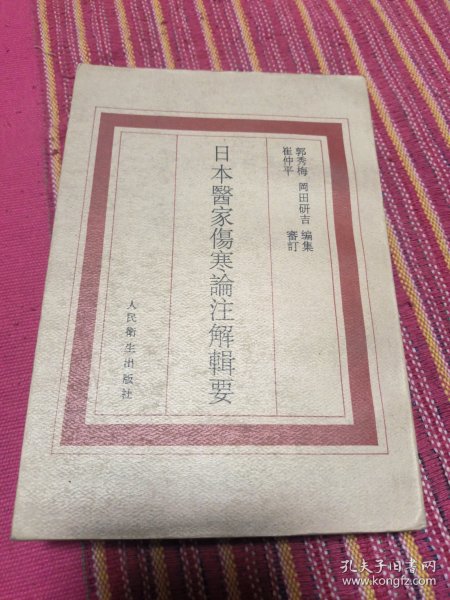 郭秀梅 岡田研吉 編集
崔仲平 審訂
日本醫家傷寒論注解輯要
人民衛生出版社
孔夫子旧书网
www.kongfz.com